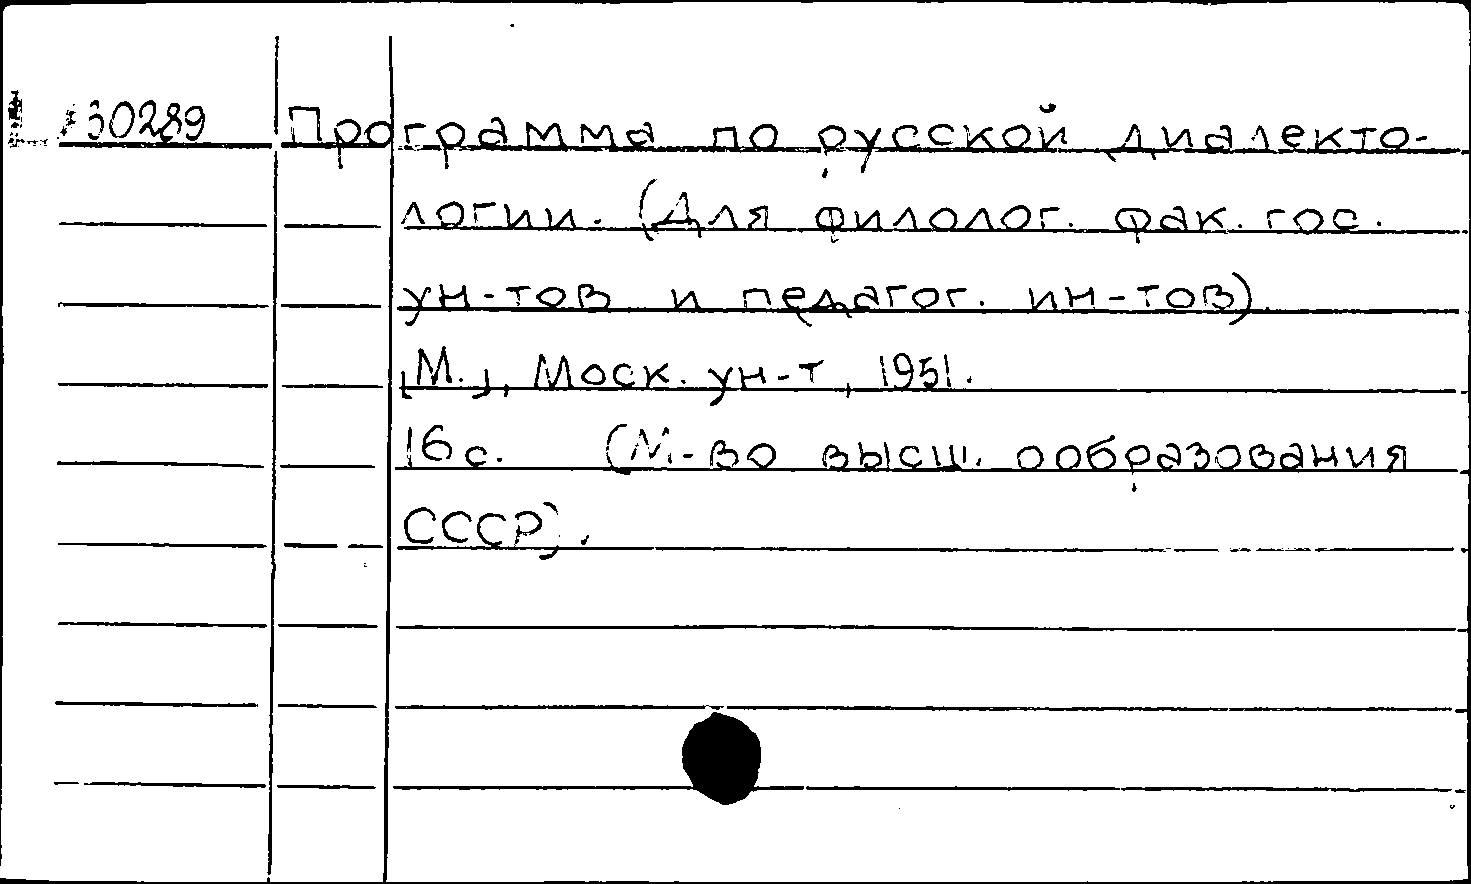 30289 Программа по русской диалекто-
логии. (Для филолог. фак. гос.
ун-тов и педагог. ин-тов).
[М.], Моск. ун-т, 1951.
16 с. (М-во высш. ообразования
СССР).